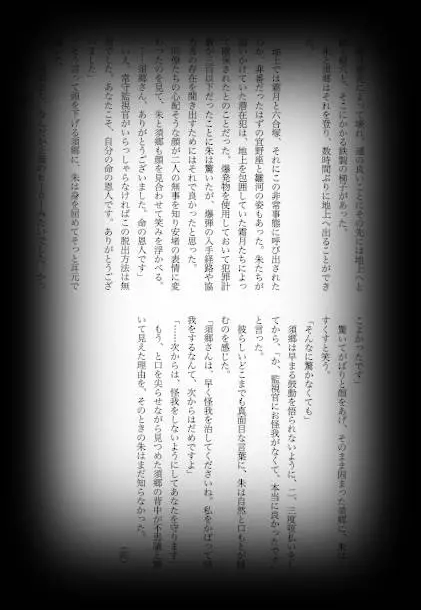 壊れ、運の良いことにその先には地上へと
そこにかかる鉄製の梯子があった。
朱と須郷はそれを登り、数時間ぶりに地上へ出ることができ
地上では霜月と六合塚、それにこの非常事態に呼び出された
か、非番だったはずの宜野座と雛河の姿もあった。朱たちが
追いかけていた潜在犯は、地上を包囲していた霜月たちによっ
て確保されたとのことだった。爆発物を使用しておいて犯罪計
以下だったことに朱は驚いたが、爆弾の入手経路や協
の存在を聞き出すためにはそれで良かったと思った。
同僚たちの心配そうな顔が二人の無事を知り安堵の表情に変
ったのを見て、朱と須郷も顔を見合わせて笑みを浮かべる。
「須郷さん、ありがとうございました。命の恩人です」
いえ、常守監視官がいらっしゃらなければこの脱出方法は無
でした。あなたこそ、自分の命の恩人です。ありがとうござ
ました」
そう言って頭を下げる須郷に、朱は身を屈めてそっと耳元で
こよかったです」
驚いてがばりと顔をあげ、そのまま固まった須郷に、朱は
すくすと笑う。
「そんなに驚かなくても」
須郷は早まる鼓動を悟られないように、二、三度咳払いをし
てから、「か、監視官にお怪我がなくて、本当に良かったです」
と言った。
彼らしいどこまでも真面目な言葉に、朱は自然と口もとが緩
むのを感じた。
「須郷さんは、早く怪我を治してくださいね。私をかばって怪
我をするなんて、次からはだめですよ」
「……次からは、怪我をしないようにしてあなたを守ります」
もう、と口を尖らせながら見つめた須郷の背中が不思議と
いて見えた理由を、そのときの朱はまだ知らなかった。